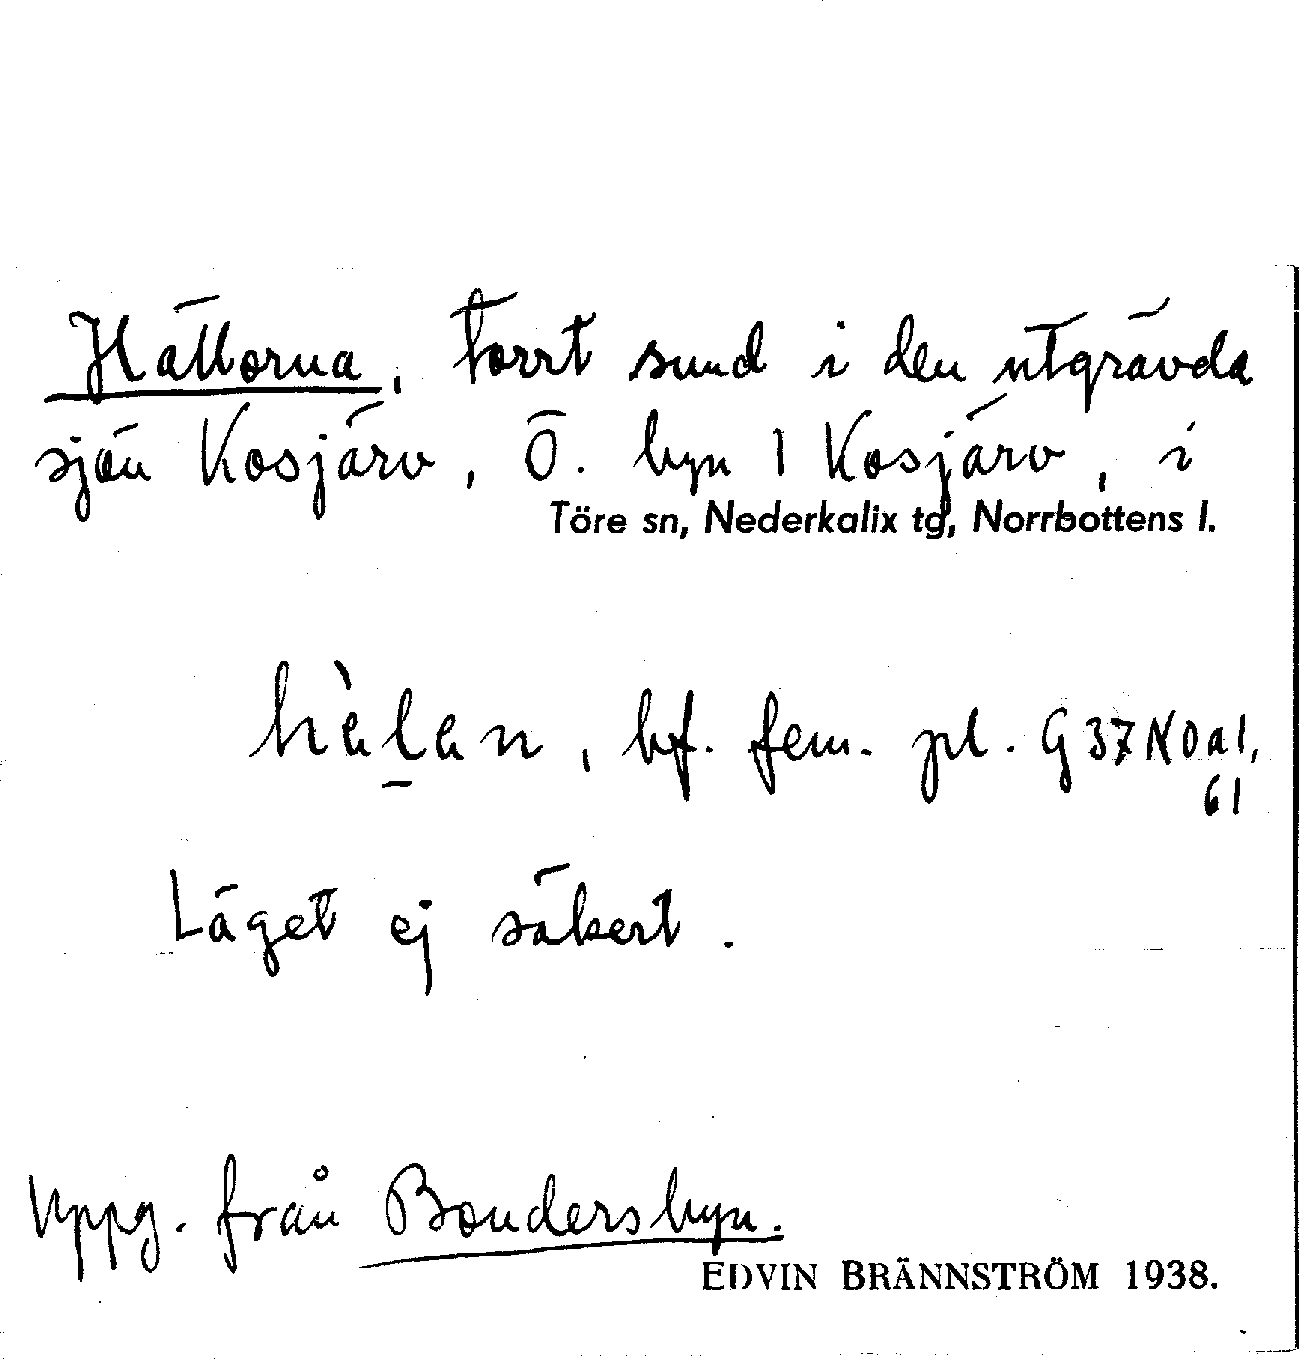 Hällorna, torrt sund i den utgrävda
sjön Kosjärv, Ö. byn 1 Kosjärv, i
Töre sn, Nederkalix tg, Norrbottens l.
hàḷan, bf. fem. pl. G37NOa1,
61
Läget ej säkert.
Uppg. från Bondersbyn.
EDVIN BRÄNNSTRÖM 1938.